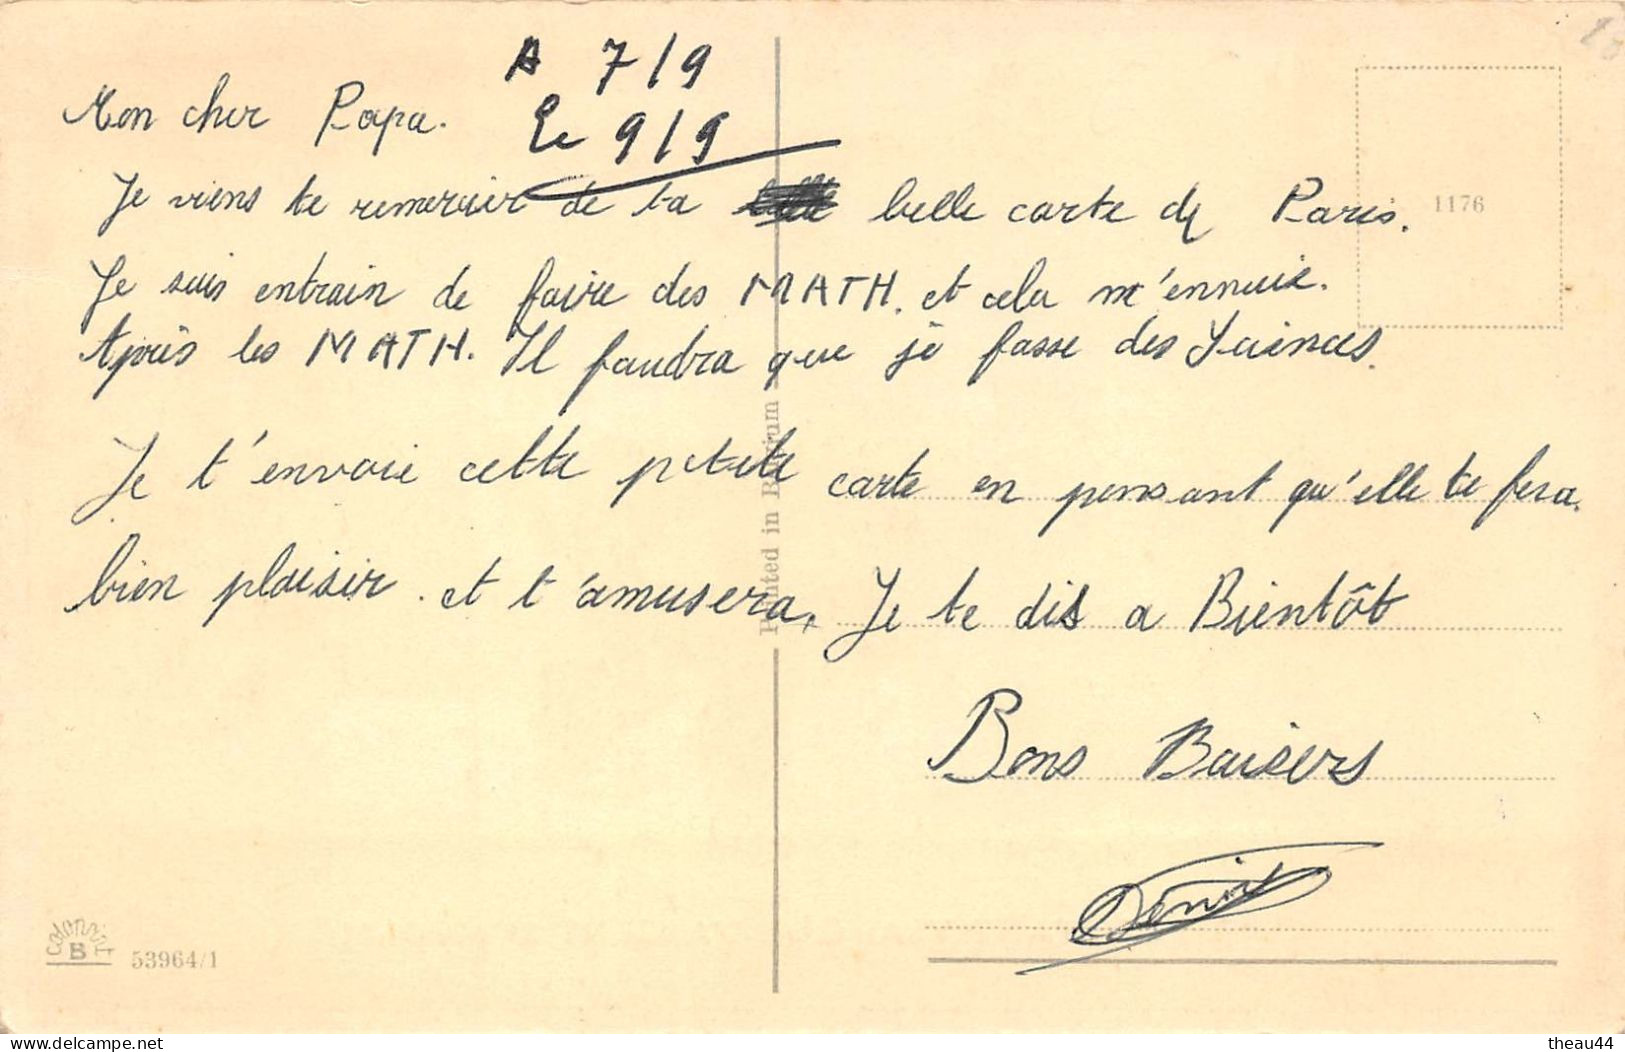 A 7/9
Le 9/9
Mon cher Papa.
Je viens te remercier de ta belle carte de Paris.
Je suis entrain de faire des MATH. et cela m'ennuie.
Après les MATH. Il faudra que je fasse des Sciences.
Je t'envoie cette petite carte en pensant qu'elle te fera.
bien plaisir. et t'amusera. Je te dis a Bientôt
Bons Baisers
Denis
1176
Printed in Belgium
colorprint
B
53964/1
www.delcampe.net
theau44